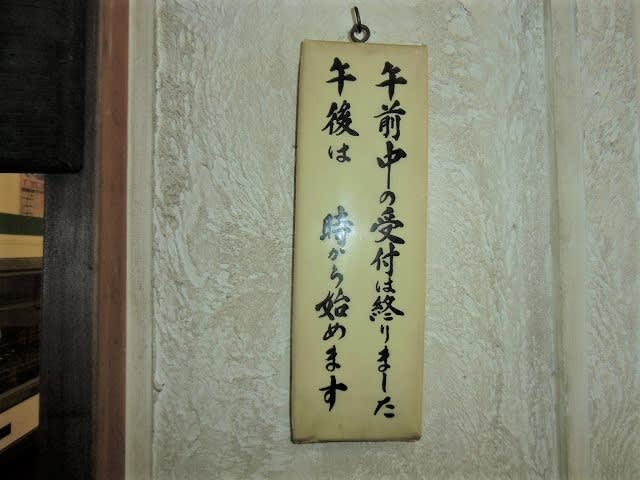 午前中の受付は終りました
午後は　時から始めます